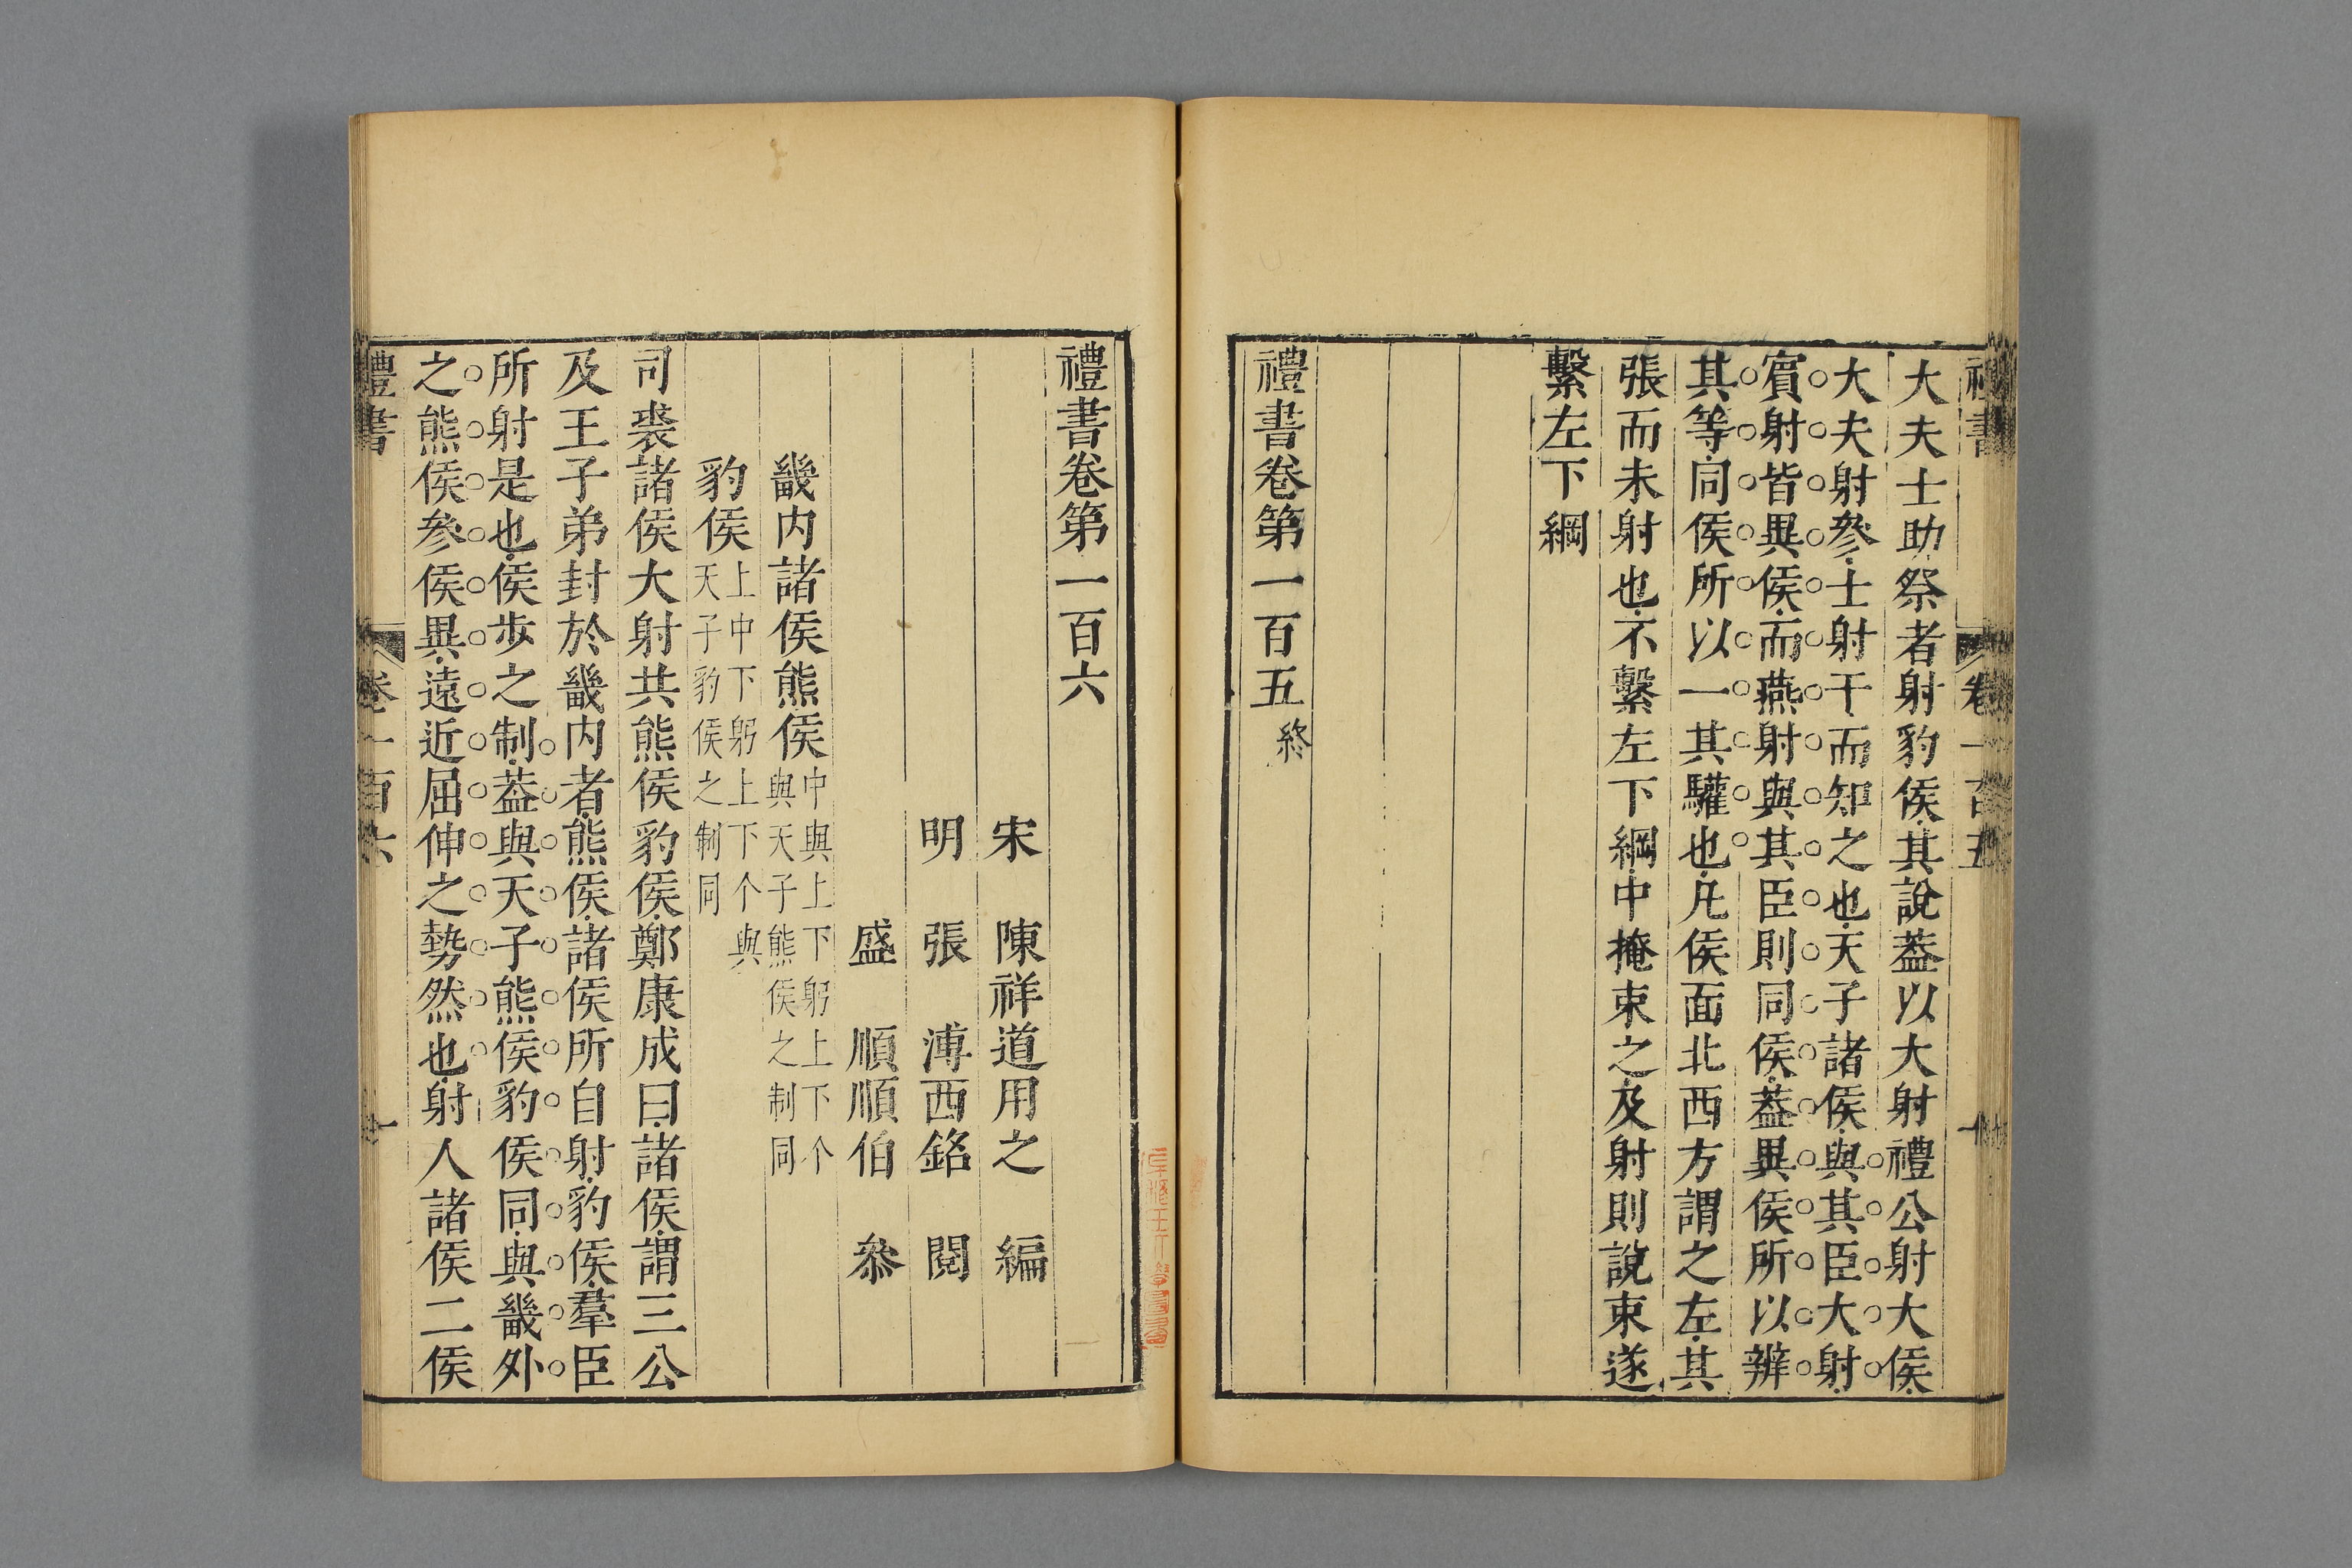 大夫士助祭者射豹侯其說葢以大射禮公射大侯
大夫射參士射干而知之也天子諸侯與其臣大射
賓射皆異侯而燕射與其臣則同侯葢異侯所以辨
其等同侯所以一其驩也凡侯面北西方謂之左其
張而未射也不繫左下綱中掩束之及射則說束遂
繫左下綱
禮書卷第一百五終
禮書卷第一百六
宋 陳祥道用之 編
明 張 溥西銘 閱
盛 順順伯 叅
畿內諸侯熊侯中與上下躬上下个
與天子熊侯之制同
豹侯上中下躬上下个與
天子豹侯之制同
司裘諸侯大射共熊侯豹侯鄭康成曰諸侯謂三公
及王子弟封於畿內者熊侯諸侯所自射豹侯羣臣
所射是也侯步之制葢與天子熊侯豹侯同與畿外
之熊侯參侯異遠近屈伸之勢然也射人諸侯二侯
禮書 卷一百六 一